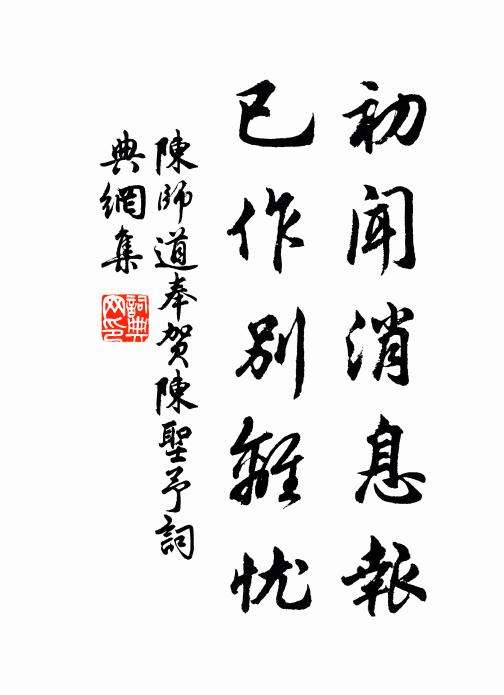 初闻消息報
已作别離忧
陳師道奉贺陳聖予詞
典網集
詞典网印